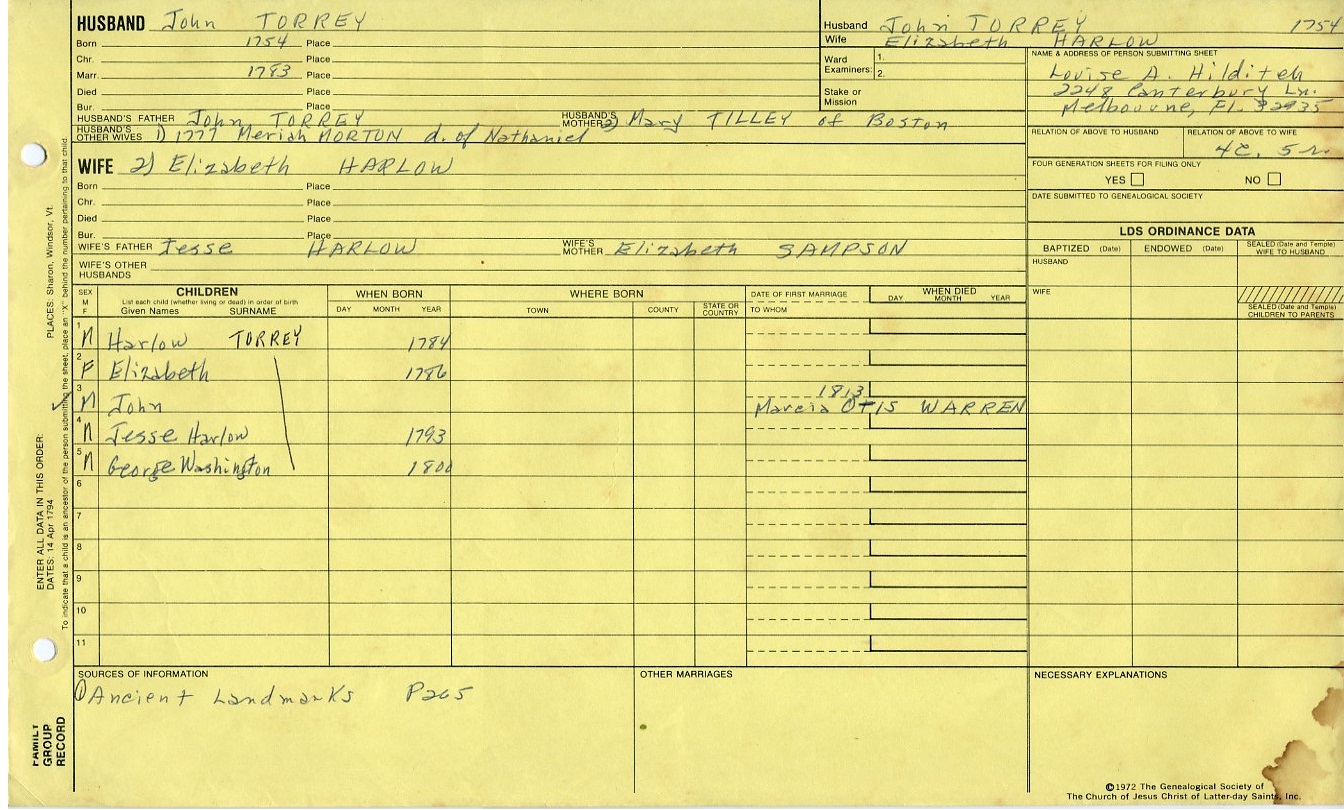 HUSBAND John TORREY
Born 1754 Place
Chr. Place
Marr. 1783 Place
Died Place
Bur. Place
HUSBAND'S FATHER John TORREY HUSBAND'S MOTHER 2) Mary TILLEY of Boston
HUSBAND'S OTHER WIVES 1) 1777 Meriah MORTON d. of Nathaniel
Husband John TORREY 1754
Wife Elizabeth HARLOW
Ward Examiners: 1.
2.
Stake or Mission
NAME & ADDRESS OF PERSON SUBMITTING SHEET
Louise A. Hilditch
2248 Canterbury Ln.
Melbourne, FL. 32935
RELATION OF ABOVE TO HUSBAND RELATION OF ABOVE TO WIFE
4c. 5r.
FOUR GENERATION SHEETS FOR FILING ONLY
YES NO
DATE SUBMITTED TO GENEALOGICAL SOCIETY
WIFE 2) Elizabeth HARLOW
Born Place
Chr. Place
Died Place
Bur. Place
WIFE'S FATHER Jesse HARLOW WIFE'S MOTHER Elizabeth SAMPSON
WIFE'S OTHER HUSBANDS
LDS ORDINANCE DATA
BAPTIZED (Date) ENDOWED (Date) SEALED (Date and Temple) WIFE TO HUSBAND
HUSBAND
WIFE
SEALED (Date and Temple) CHILDREN TO PARENTS
SEX M F CHILDREN WHEN BORN WHERE BORN DATE OF FIRST MARRIAGE WHEN DIED
List each child (whether living or dead) in order of birth
Given Names SURNAME DAY MONTH YEAR TOWN COUNTY STATE OR COUNTRY TO WHOM DAY MONTH YEAR
1 M Harlow TORREY 1784
2 F Elizabeth 1786
3 M John 1813
Marcia OTIS WARREN
4 M Jesse Harlow 1793
5 M George Washington 1800
6
7
8
9
10
11
SOURCES OF INFORMATION OTHER MARRIAGES NECESSARY EXPLANATIONS
1 Ancient Landmarks P265
©1972 The Genealogical Society of
The Church of Jesus Christ of Latter-day Saints, Inc.
FAMILY
GROUP
RECORD
ENTER ALL DATA IN THIS ORDER:
DATES: 14 Apr 1794
PLACES: Sharon, Windsor, Vt.
To indicate that a child is an ancestor of the person submitting the sheet, place an "X" behind the number pertaining to that child.